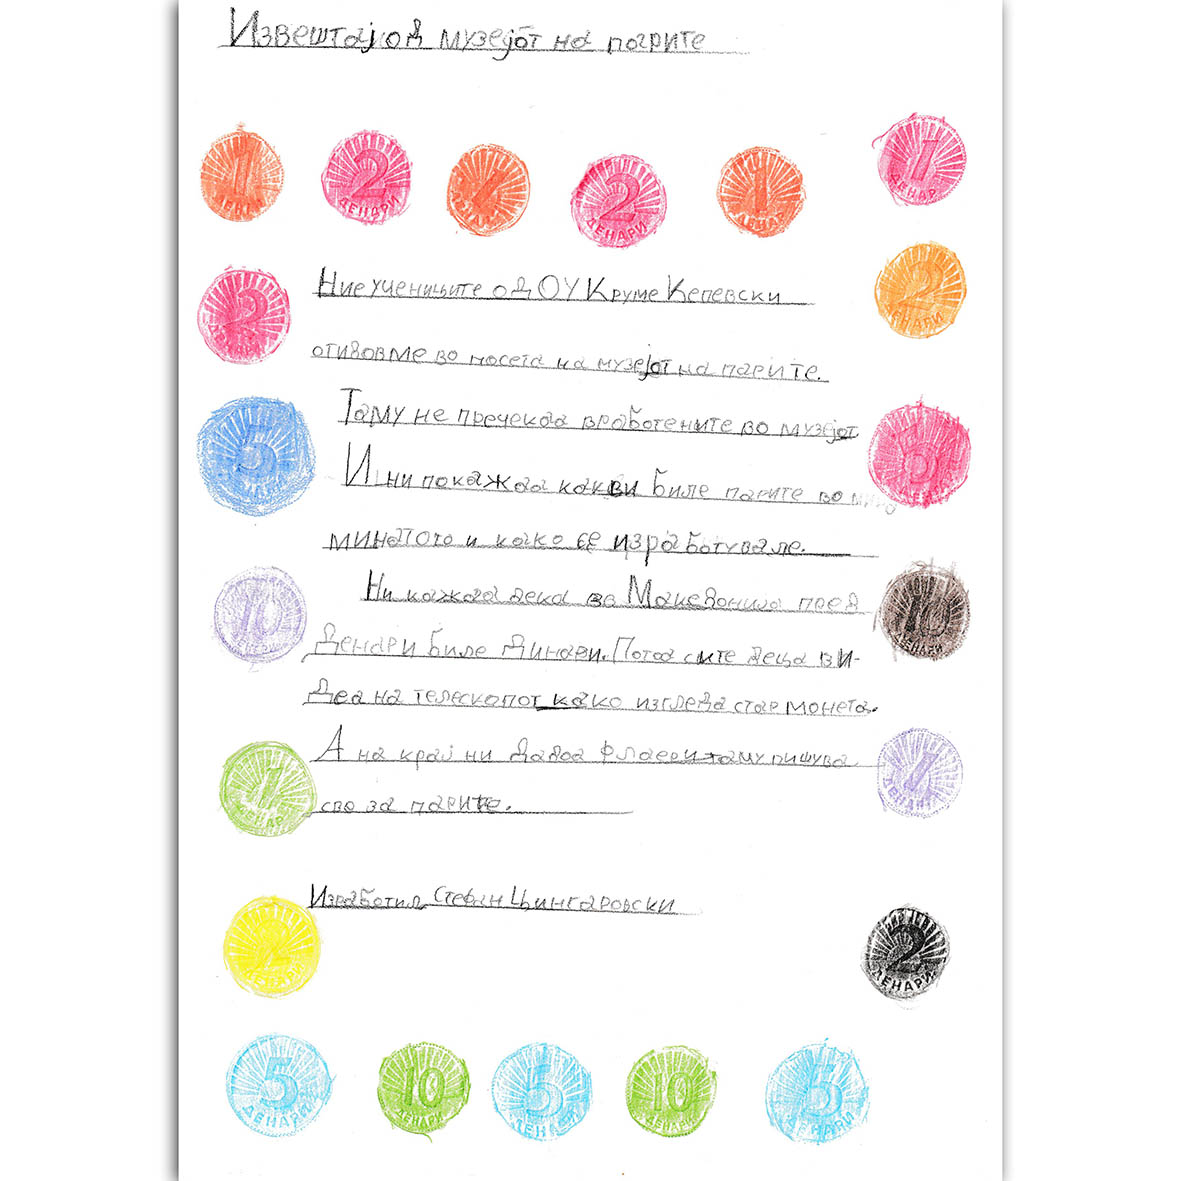 Извештај од музејот на парите
1 ДЕНАР
2 ДЕНАРИ
2 ДЕНАРИ
2 ДЕНАРИ
1 ДЕНАР
1 ДЕНАР
2 ДЕНАРИ
Ние учениците од ОУ Круме Кепевски
2 ДЕНАРИ
отидовме во посета на музејот на парите.
Таму не пречекаа вработените во музејот
5
5 ДЕНАРИ
И ни покажаа какви биле парите во
миналото и како се изработувале.
Ни кажаа дека во Македонија пред
10 ДЕНАРИ
10 ДЕНАРИ
Денари биле Динари. Потоа сите деца ви-
деа на телескопот како изгледа стар монета.
А на крај ни дадоа флаери таму пишува
1 ДЕНАР
1 ДЕНАРИ
све за парите.
Изработил Стефан Цингаровски
2 ДЕНАРИ
2 ДЕНАРИ
5 ДЕНАРИ
10 ДЕНАРИ
5 ДЕНАРИ
10 ДЕНАРИ
5 ДЕНАРИ